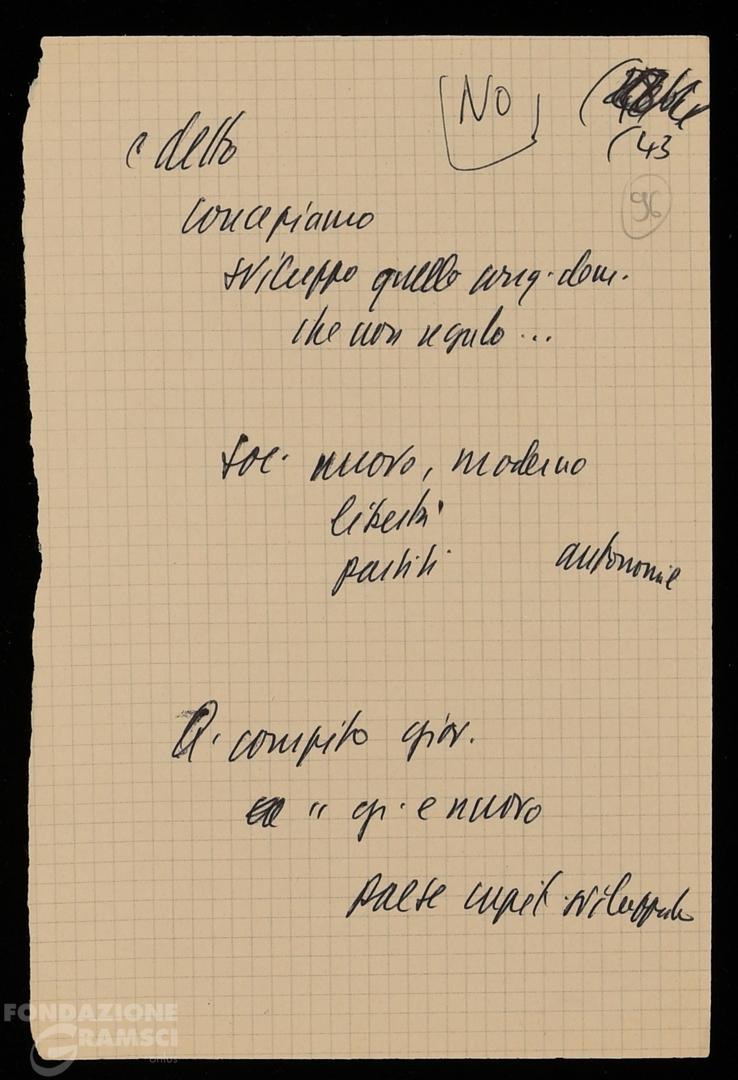 NO
(43
96
è detto
concepiamo
sviluppo quello
che non regalo...
soc. nuovo, moderno
libertà
partiti autonomie
compito giov.
" gr. e nuovo
paese capit. sviluppato
FONDAZIONE
GRAMSCI
onlus